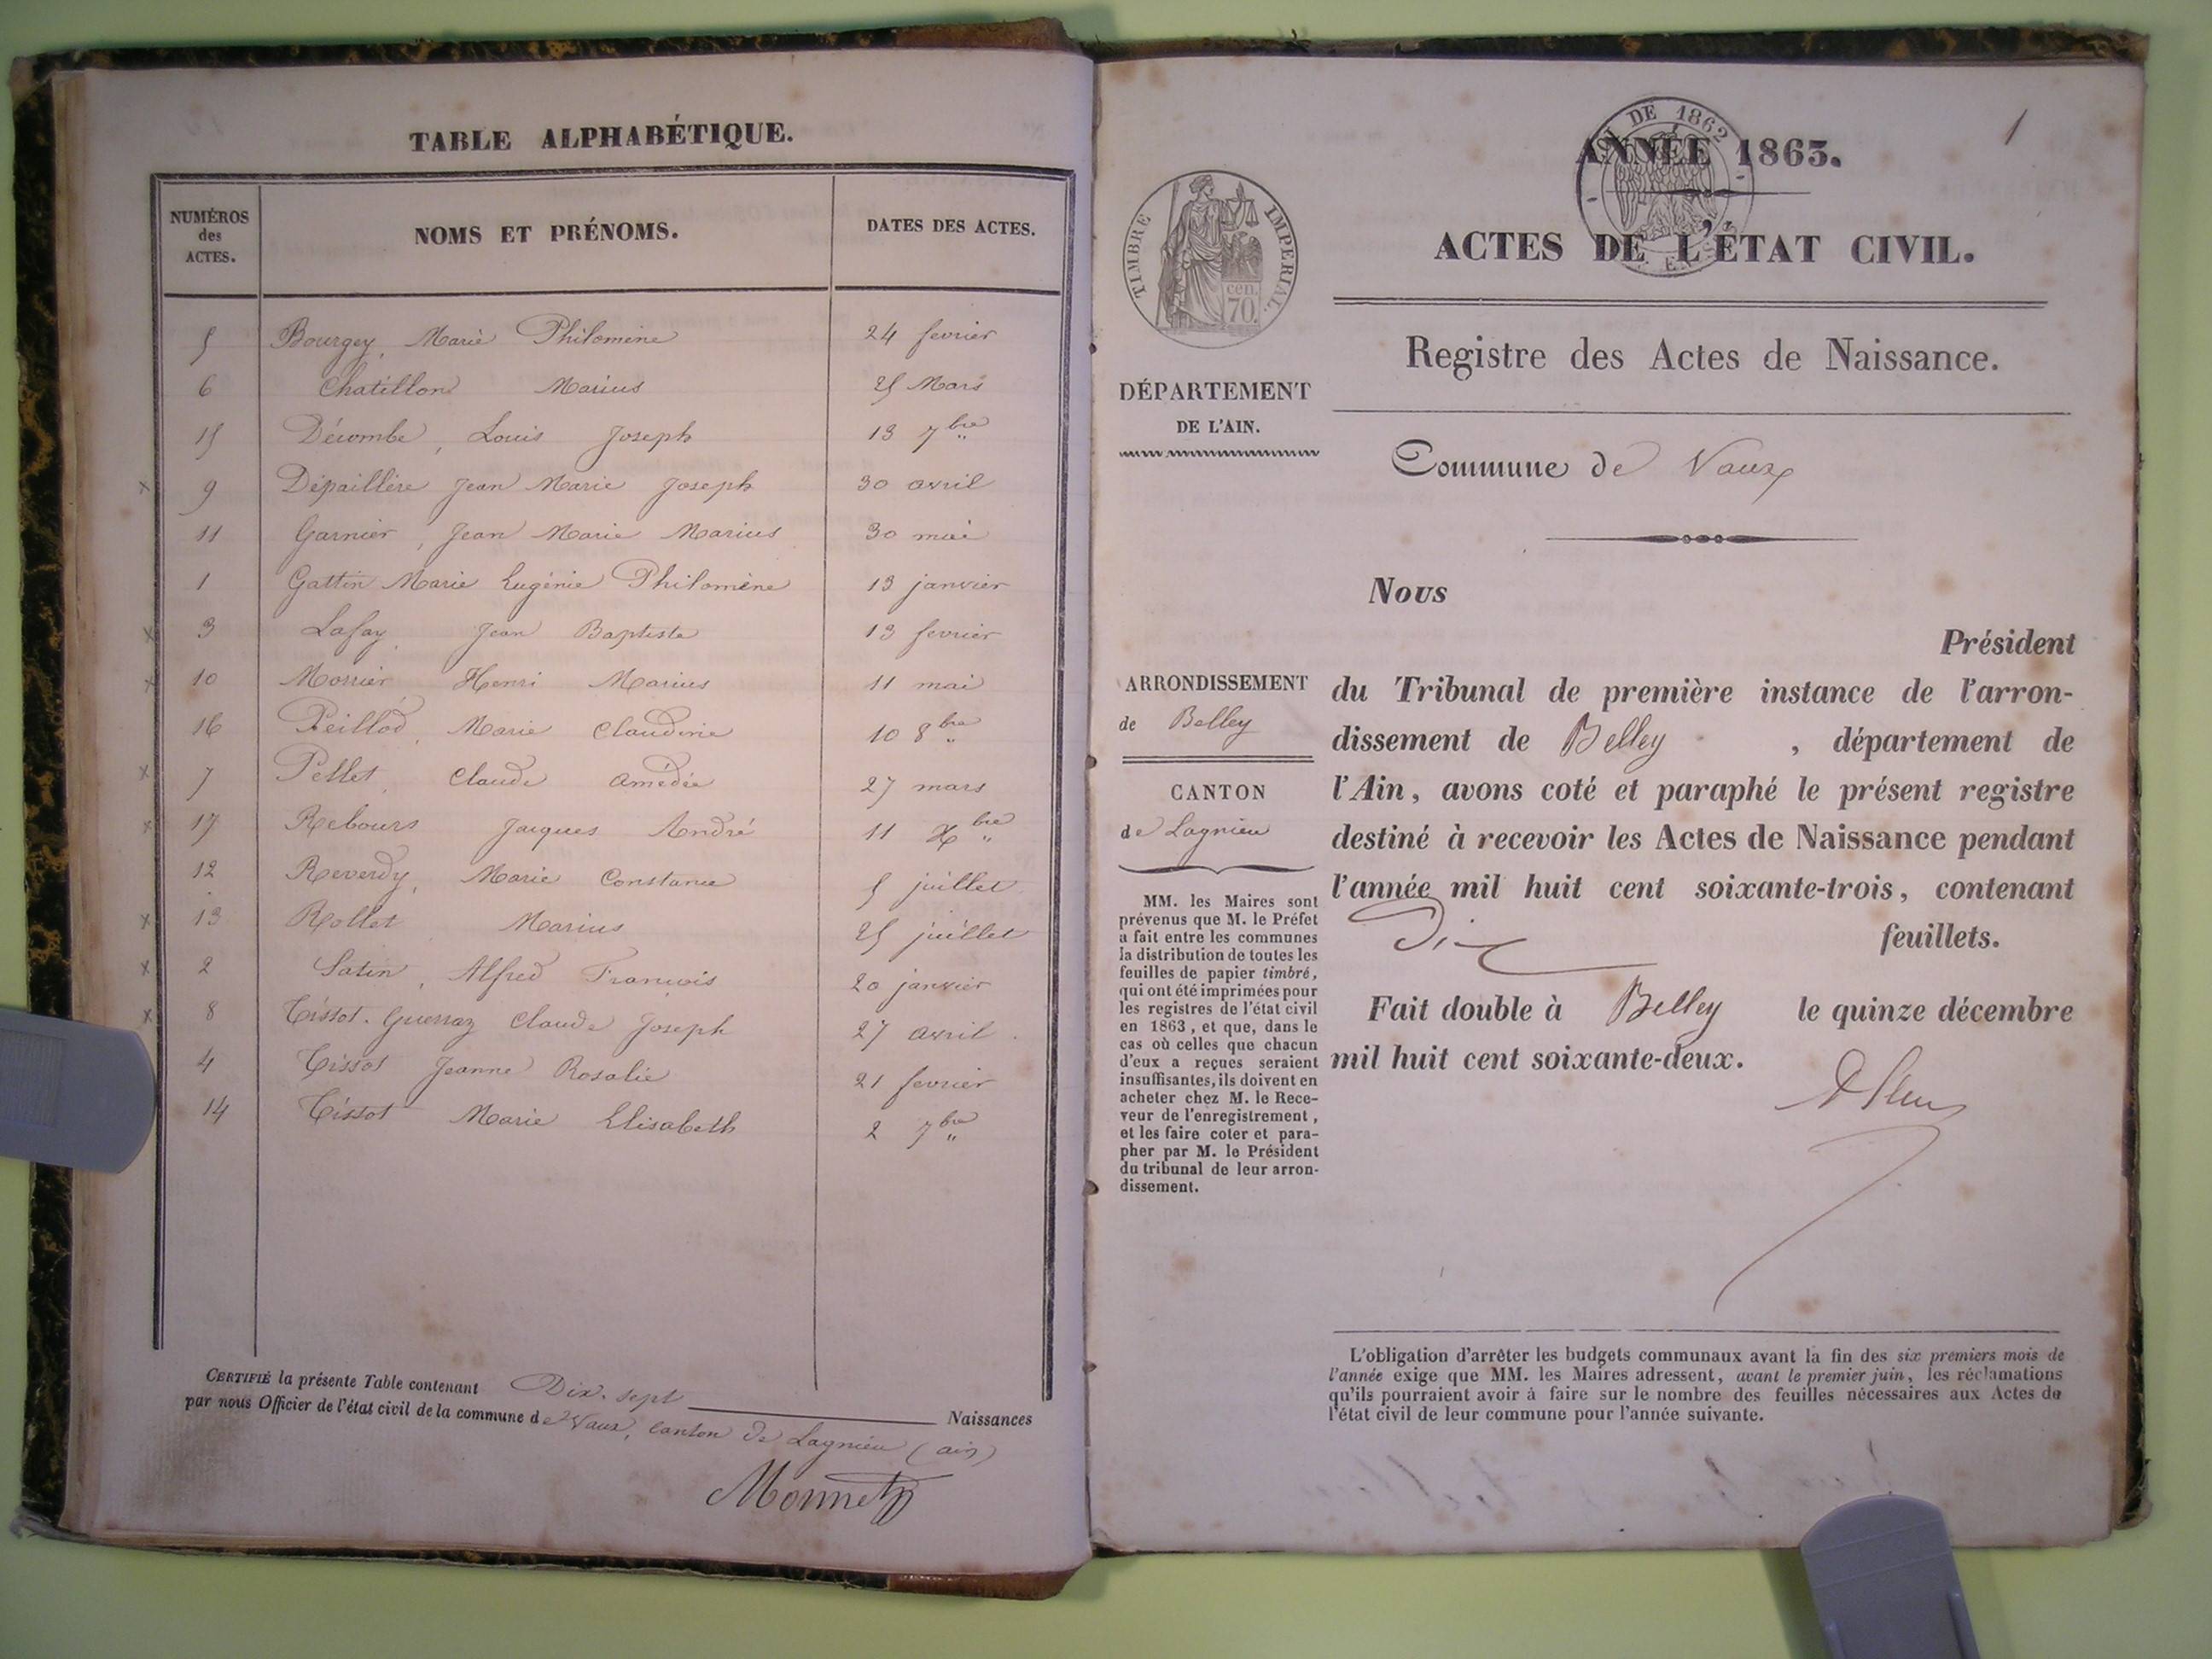 TABLE ALPHABÉTIQUE.
NUMÉROS des ACTES. NOMS ET PRÉNOMS. DATES DES ACTES.
5 Bourgey, Marie Philomène 24 fevrier
6 Chatillon Marius 25 Mars
15 Décombe, Louis Joseph 13 7bre
x 9 Dépaillère Jean Marie Joseph 30 avril
11 Garnier, Jean Marie Marius 30 mai
1 Gattin Marie Eugénie Philomène 13 janvier
x 3 Lafay, Jean Baptiste 13 fevrier
x 10 Morrier, Henri Marius 11 mai
16 Peillod, Marie Claudine 10 8bre
x 7 Pellet, Claude Amédée 27 mars
x 17 Rebours Jacques André 11 Xbre
12 Reverdy, Marie Constance 5 juillet
x 13 Rollet Marius 25 juillet
x 2 Satin, Alfred François 20 janvier
x 8 Tissot-Guerraz Claude Joseph 27 avril
4 Tissot Jeanne Rosalie 21 fevrier
14 Tissot Marie Elisabeth 2 7bre
CERTIFIÉ la présente Table contenant Dix-sept Naissances
par nous Officier de l'état civil de la commune de Vaux, canton de Lagnieu (ain)
Monnet
1
LOI DE 1862
ANNÉE 1863.
ACTES DE L'ÉTAT CIVIL.
Registre des Actes de Naissance.
TIMBRE IMPERIAL.
cen.
70.
DÉPARTEMENT
DE L'AIN.
Commune de Vaux
ARRONDISSEMENT
de Belley
CANTON
de Lagnieu
MM. les Maires sont
prévenus que M. le Préfet
a fait entre les communes
la distribution de toutes les
feuilles de papier timbré,
qui ont été imprimées pour
les registres de l'état civil
en 1863, et que, dans le
cas où celles que chacun
d'eux a reçues seraient
insuffisantes, ils doivent en
acheter chez M. le Rece-
veur de l'enregistrement,
et les faire coter et para-
pher par M. le Président
du tribunal de leur arron-
dissement.
Nous
Président
du Tribunal de première instance de l'arron-
dissement de Belley, département de
l'Ain, avons coté et paraphé le présent registre
destiné à recevoir les Actes de Naissance pendant
l'année mil huit cent soixante-trois, contenant
Dix feuillets.
Fait double à Belley le quinze décembre
mil huit cent soixante-deux.
L'obligation d'arrêter les budgets communaux avant la fin des six premiers mois de
l'année exige que MM. les Maires adressent, avant le premier juin, les réclamations
qu'ils pourraient avoir à faire sur le nombre des feuilles nécessaires aux Actes de
l'état civil de leur commune pour l'année suivante.